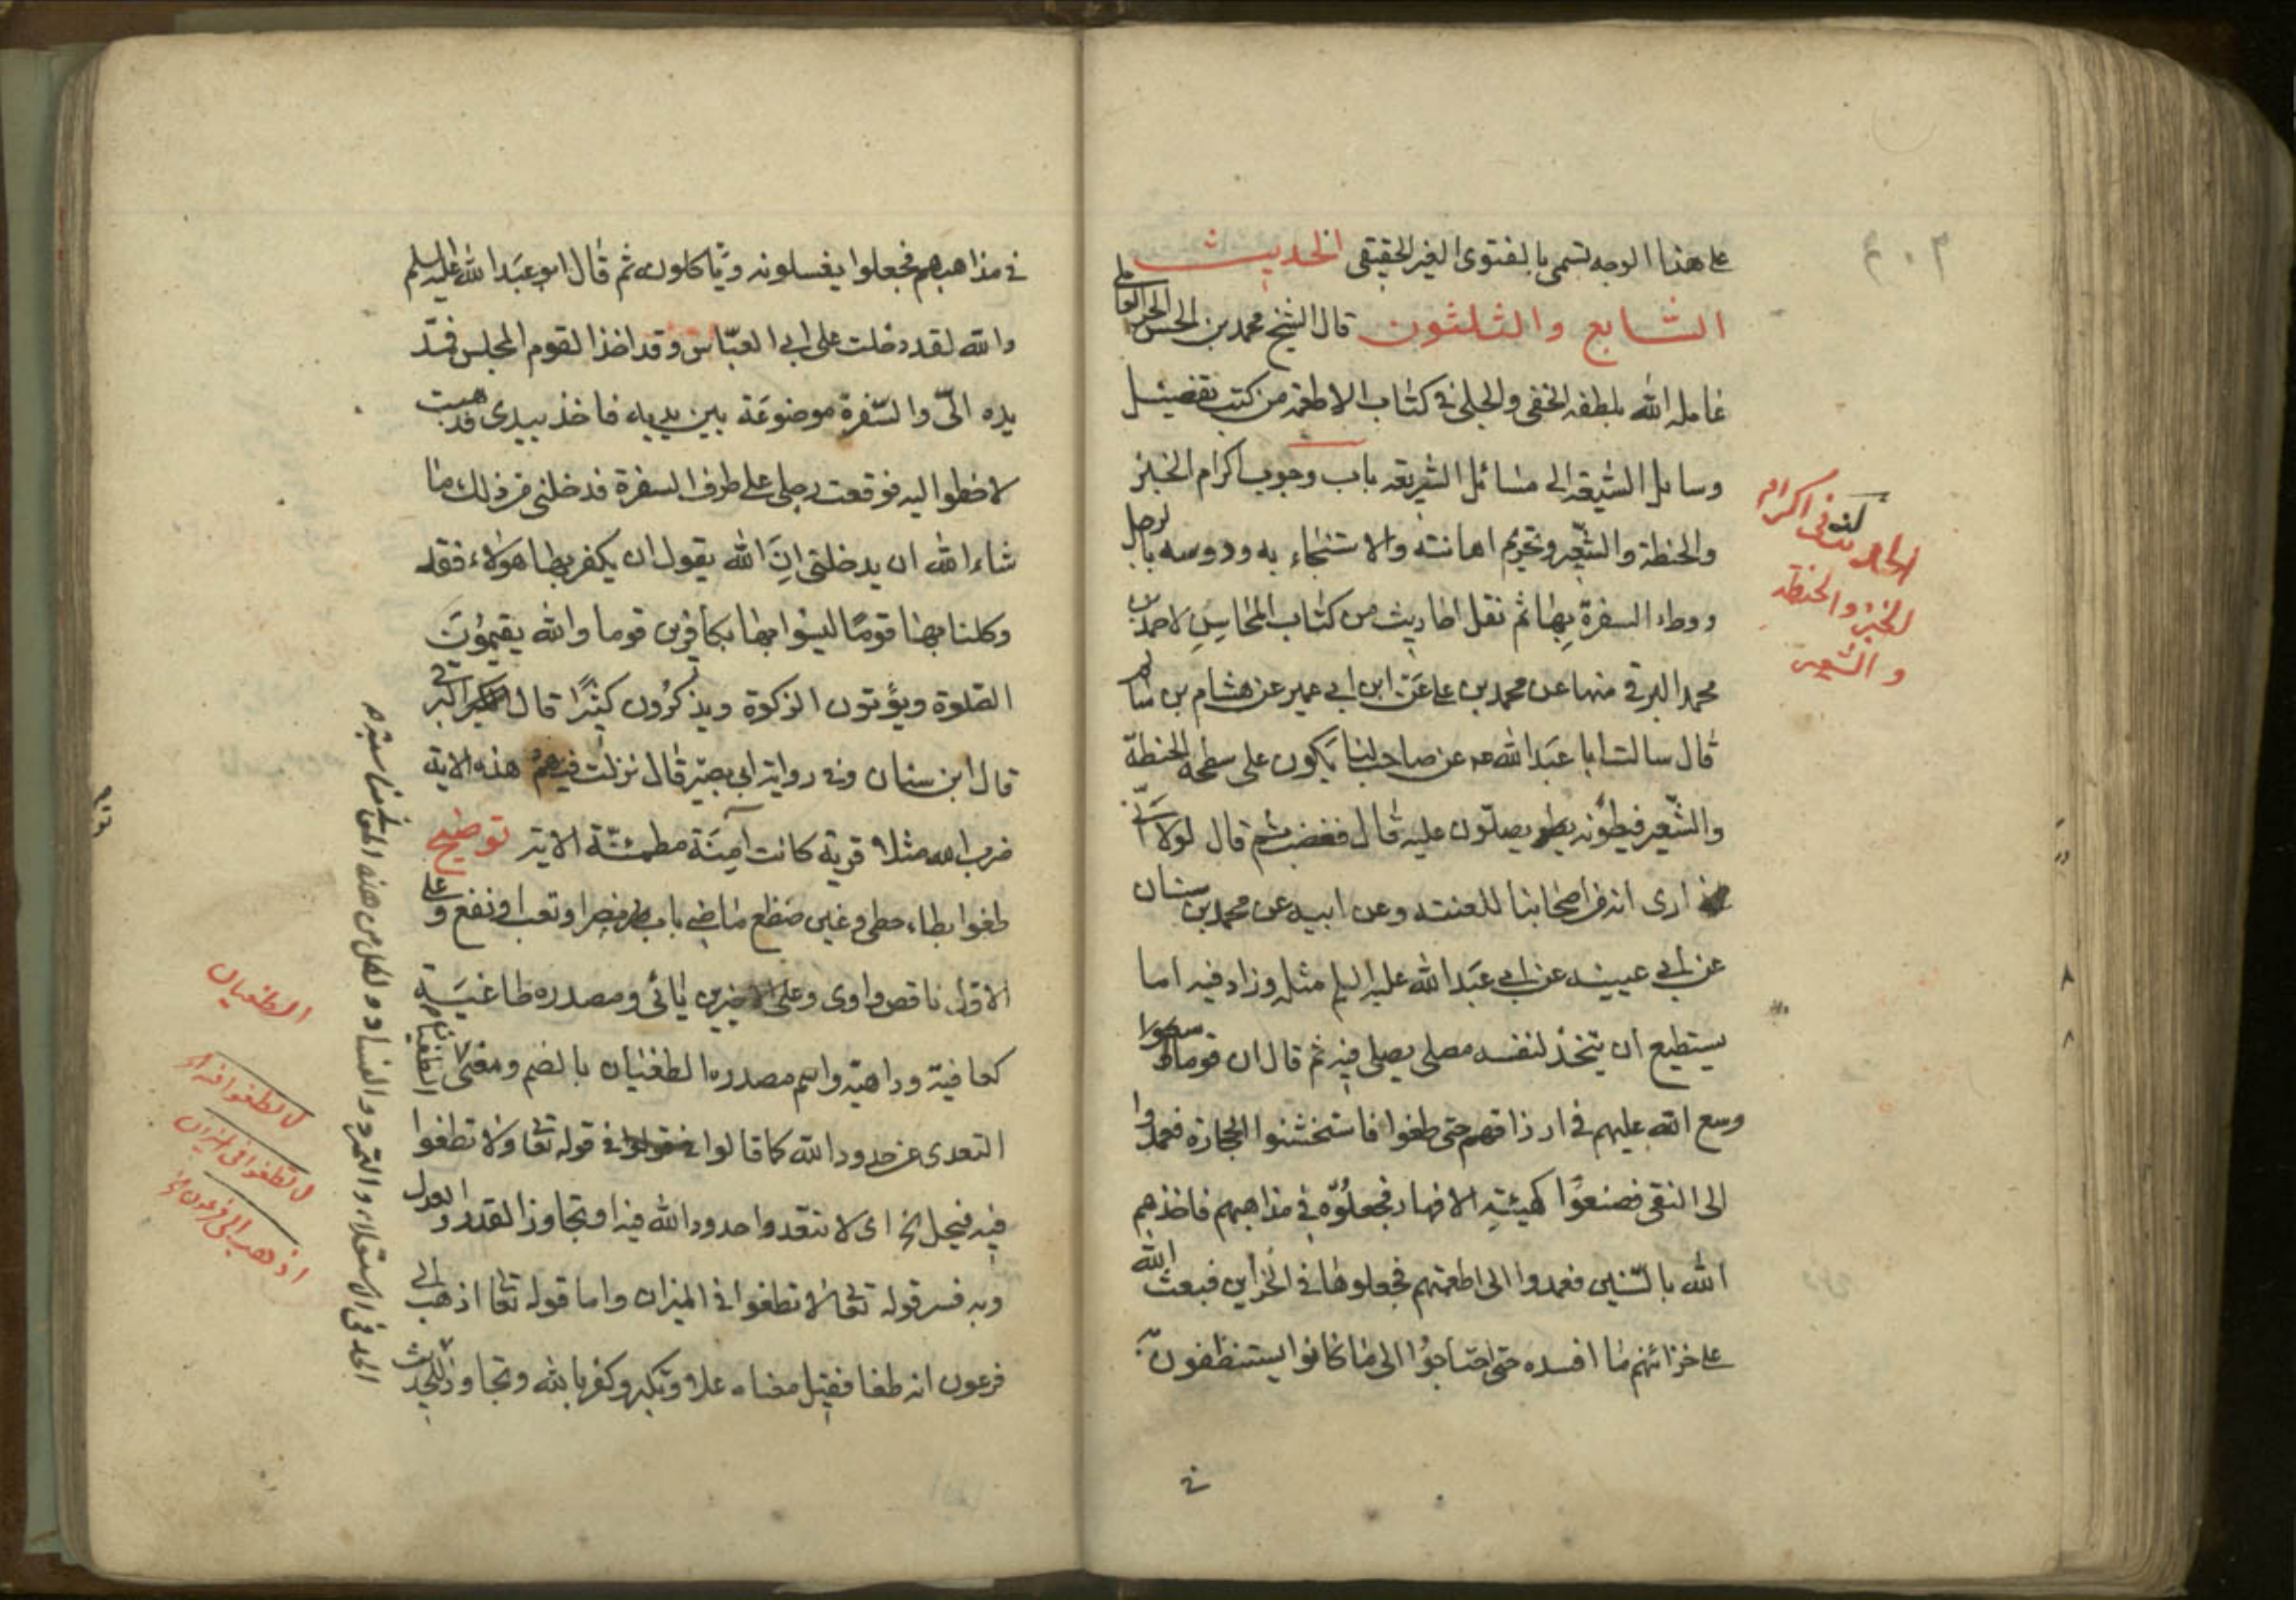 على هذا الوجه تسمى بالفتوى الغير الحقيقى الحديث
السابع والثلثون قال الشيخ محمد بن الحسن الحر العاملى
عامله الله بلطفه الخفى والجلى فى كتاب الاطعمة من كتب تفصيل
وسايل الشيعة الى مسائل الشريعة باب وجوب اكرام الخبز
والحنطة والشعير وتحريم اهانته والاستنجاء به ودوسه بالرجل
ووطء السفرة بها ثم نقل احاديث من كتاب المحاسن لاحمد بن
محمد البرقى منها عن محمد بن على عن ابن ابى عمير عن هشام بن سالم
قال سالت ابا عبد الله عن صاحب لنا يكون على سطحه الحنطة
والشعير فيطؤنه يصلون عليه قال فغضب ثم قال لولا انى
ارى انه من اصحابنا للعنته وعن ابيه عن محمد بن سنان
عن ابى عيينه عن ابى عبد الله عليه السلم مثله وزاد فيه اما
يستطيع ان يتخذ لنفسه مصلى يصلى فيه ثم قال ان قوما
وسع الله عليهم فى ارزاقهم حتى طغوا فاستخشنوا الحجارة فعمدوا
الى النقى فصنعوا كهيئة الافهار فجعلوه فى مذاهبهم فاخذهم
الله بالسنين فعمدوا الى اطعمتهم فجعلوها فى الخزاين فبعث الله
على خزائنهم ما افسده حتى احتاجوا الى ما كانوا يستنظفون به
فى
فى اكرام
الخبز والحنطة
والشعير
فى مذاهبهم فجعلوا يغسلونه وياكلونه ثم قال ابو عبد الله عليه السلم
والله لقد دخلت على ابى العباس وقد اخذ القوم المجلس فمد
يده الى والسفرة موضوعة بين يديه فاخذ بيدى فذهبت
لاخطوا اليه فوقعت رجلى على طرف السفرة فدخلنى من ذلك ما
شاء الله ان يدخلنى ان الله يقول ان يكفر بها هولاء فقد
وكلنا بها قوما ليسوا بها بكافرين قوما والله يقيمون
الصلوة ويؤتون الزكوة ويذكرون كثيرا قال البرقى
قال ابن سنان وفى رواية ابى بصير قال نزلت فيهم هذه الاية
ضرب الله مثلا قرية كانت آمنة مطمئنة الاية توضيح
طغوا بطاء حطى وغين ضظغ ماضى باب نصر او تعب او نفع وعلى
الاول ناقص واوى وعلى الاخيرين يائى ومصدره طاغية
كعافية وداهية واسم مصدره الطغيان بالضم ومعنى الطغيان
التعدى عن حدود الله كما قالوا فى قوله تعا ولا تطغوا
فيه فيحل الخ اى لا تتعدوا حدود الله فيه او تجاوز القدر والعدل
وبه فسر قوله تعالى لا تطغوا فى الميزان واما قوله تعا اذهب الى
فرعون انه طغا فقيل معناه علا وتكبر وكفر بالله وتجاوز الحد
الطغيان
لا تطغوا فيه
لا تطغوا فى الميزان
اذهب الى فرعون